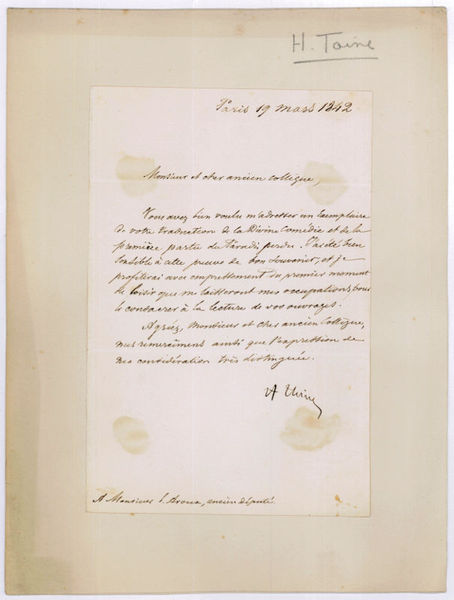 H. Taine
Paris 19 mars 1842
Monsieur et cher ancien collègue,
Vous avez bien voulu m'adresser un Exemplaire
de votre traduction de la Divine Comédie et de la
première partie du Paradis perdu. J'ai été bien
sensible à cette preuve de bon Souvenir, et je
profiterai avec empressement du premier moment
de loisir que me laisseront mes occupations, pour
le consacrer à la lecture de vos ouvrages.
Agréez, Monsieur et cher ancien Collègue,
mes remerciments ainsi que l'expression de
ma considération très distinguée.
A Monsieur E. Aroux, ancien député.